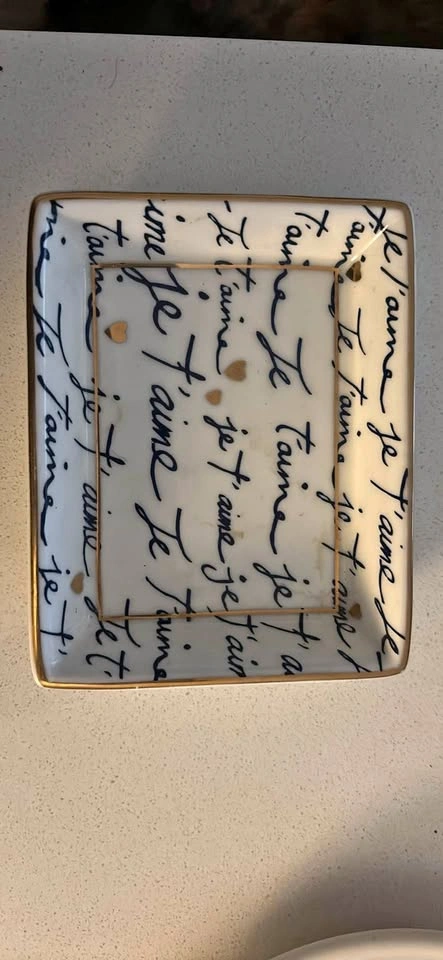 Je t'aime je t'aime Je
t'aime Je t'aime je t'aime
t'aime Je t'aime je t'a
Je t'aime je t'aime je t'aim
ime je t'aime Je t'aime
t'aime je t'aime Je t'
me Je t'aime je t'